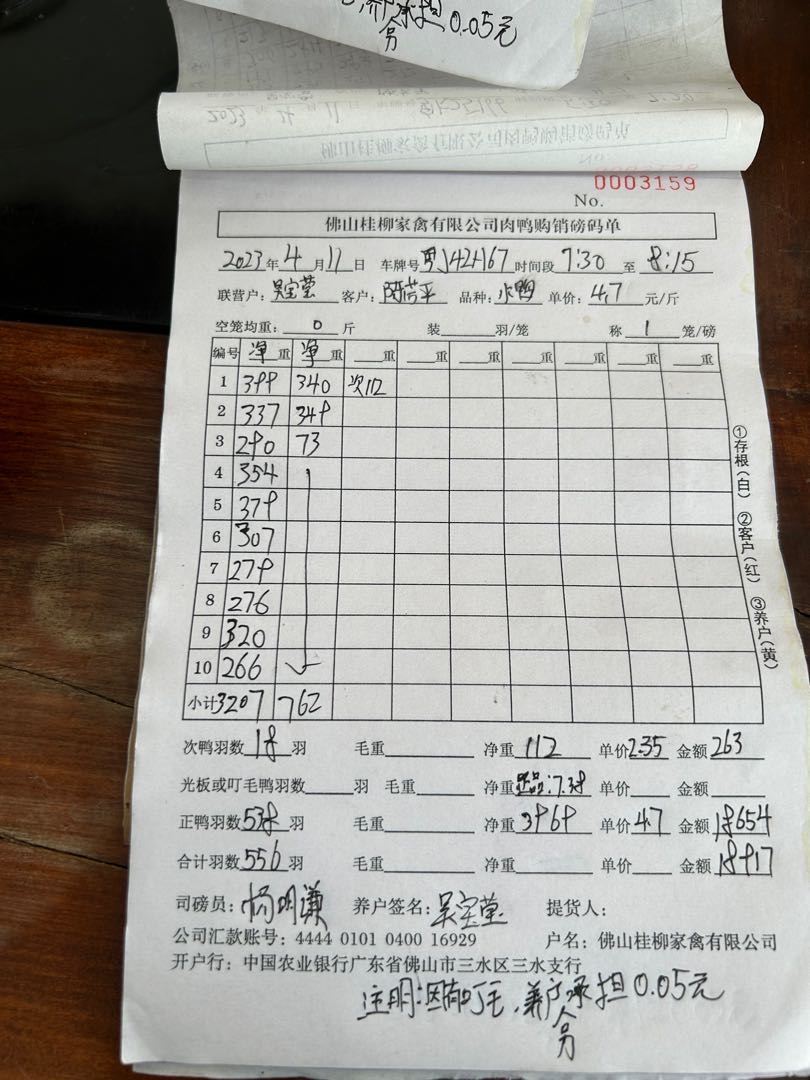 承担0.05元
2023 4 11
0003159
No.
佛山桂柳家禽有限公司肉鸭购销磅码单
2023年4月11日 车牌号 时间段 7:30 至 8:15
联营户：吴宝莹 客户： 品种：水鸭 单价：4.7 元/斤
空笼均重： 0 斤 装 羽/笼 称 1 笼/磅
编号 净重 净重 重 重 重 重 重 重 重
1 399 340 次112
2 337 349
3 290 73
4 354
5 379
6 307
7 279
8 276
9 320
10 266
小计 3207 762
次鸭羽数 18 羽 毛重 净重 112 单价 2.35 金额 263
光板或叮毛鸭羽数 羽 毛重 净重 正品:7.38 单价 金额
正鸭羽数 538 羽 毛重 净重 3969 单价 4.7 金额 18654
合计羽数 556 羽 毛重 净重 单价 金额 18917
司磅员：杨明谦 养户签名：吴宝莹 提货人：
公司汇款账号：4444 0101 0400 16929 户名：佛山桂柳家禽有限公司
开户行：中国农业银行广东省佛山市三水区三水支行
注明：因有叮毛，养户承担0.05元
①存根（白） ②客户（红） ③养户（黄）